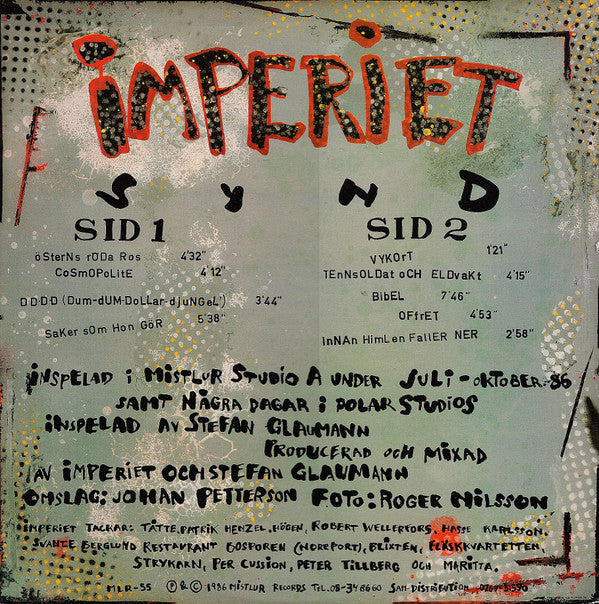 iMPERiET
SYND
SID 1
öSterNs rÖDa Ros 4'32"
CoSmOPoLitE 4'12"
DDDD (Dum-dUM-DoLLar-djuNGeL') 3'44"
SaKer sOm Hon GöR 5'38"
SID 2
VYKOrT 1'21"
TEnNsOLDat oCH ELDvaKt 4'15"
BibEL 7'46"
OFfrET 4'53"
InNAn HimLen FallER NER 2'58"
iNSPELAD i MiSTLUR STUDiO A UNDER JULi-OKTOBER-86
SAMT NÅGRA DAGAR i POLAR STUDiOS
iNSPELAD AV STEFAN GLAUMANN
PRODUCERAD OCH MiXAD
AV iMPERiET OCH STEFAN GLAUMANN
OMSLAG: JOHAN PETTERSON FOTO: ROGER NiLSSON
iMPERiET TACKAR: TÄTTE, PATRiK HENZEL, HÖGEN, ROBERT WELLERFORS, HASSE KARLSSON,
SVANTE BERGLUND RESTAURANT BOSPOREN (NOREPORT), BLiXTEN, FLÄSKKVARTETTEN,
STRYKARN, PER CUSSiON, PETER TiLLBERG OCH MARiTTA.
MLR-55 Ⓟ & © 1986 MiSTLUR RECORDS TEL. 08-34 86 60 SAM-DiSTRiBUTiON